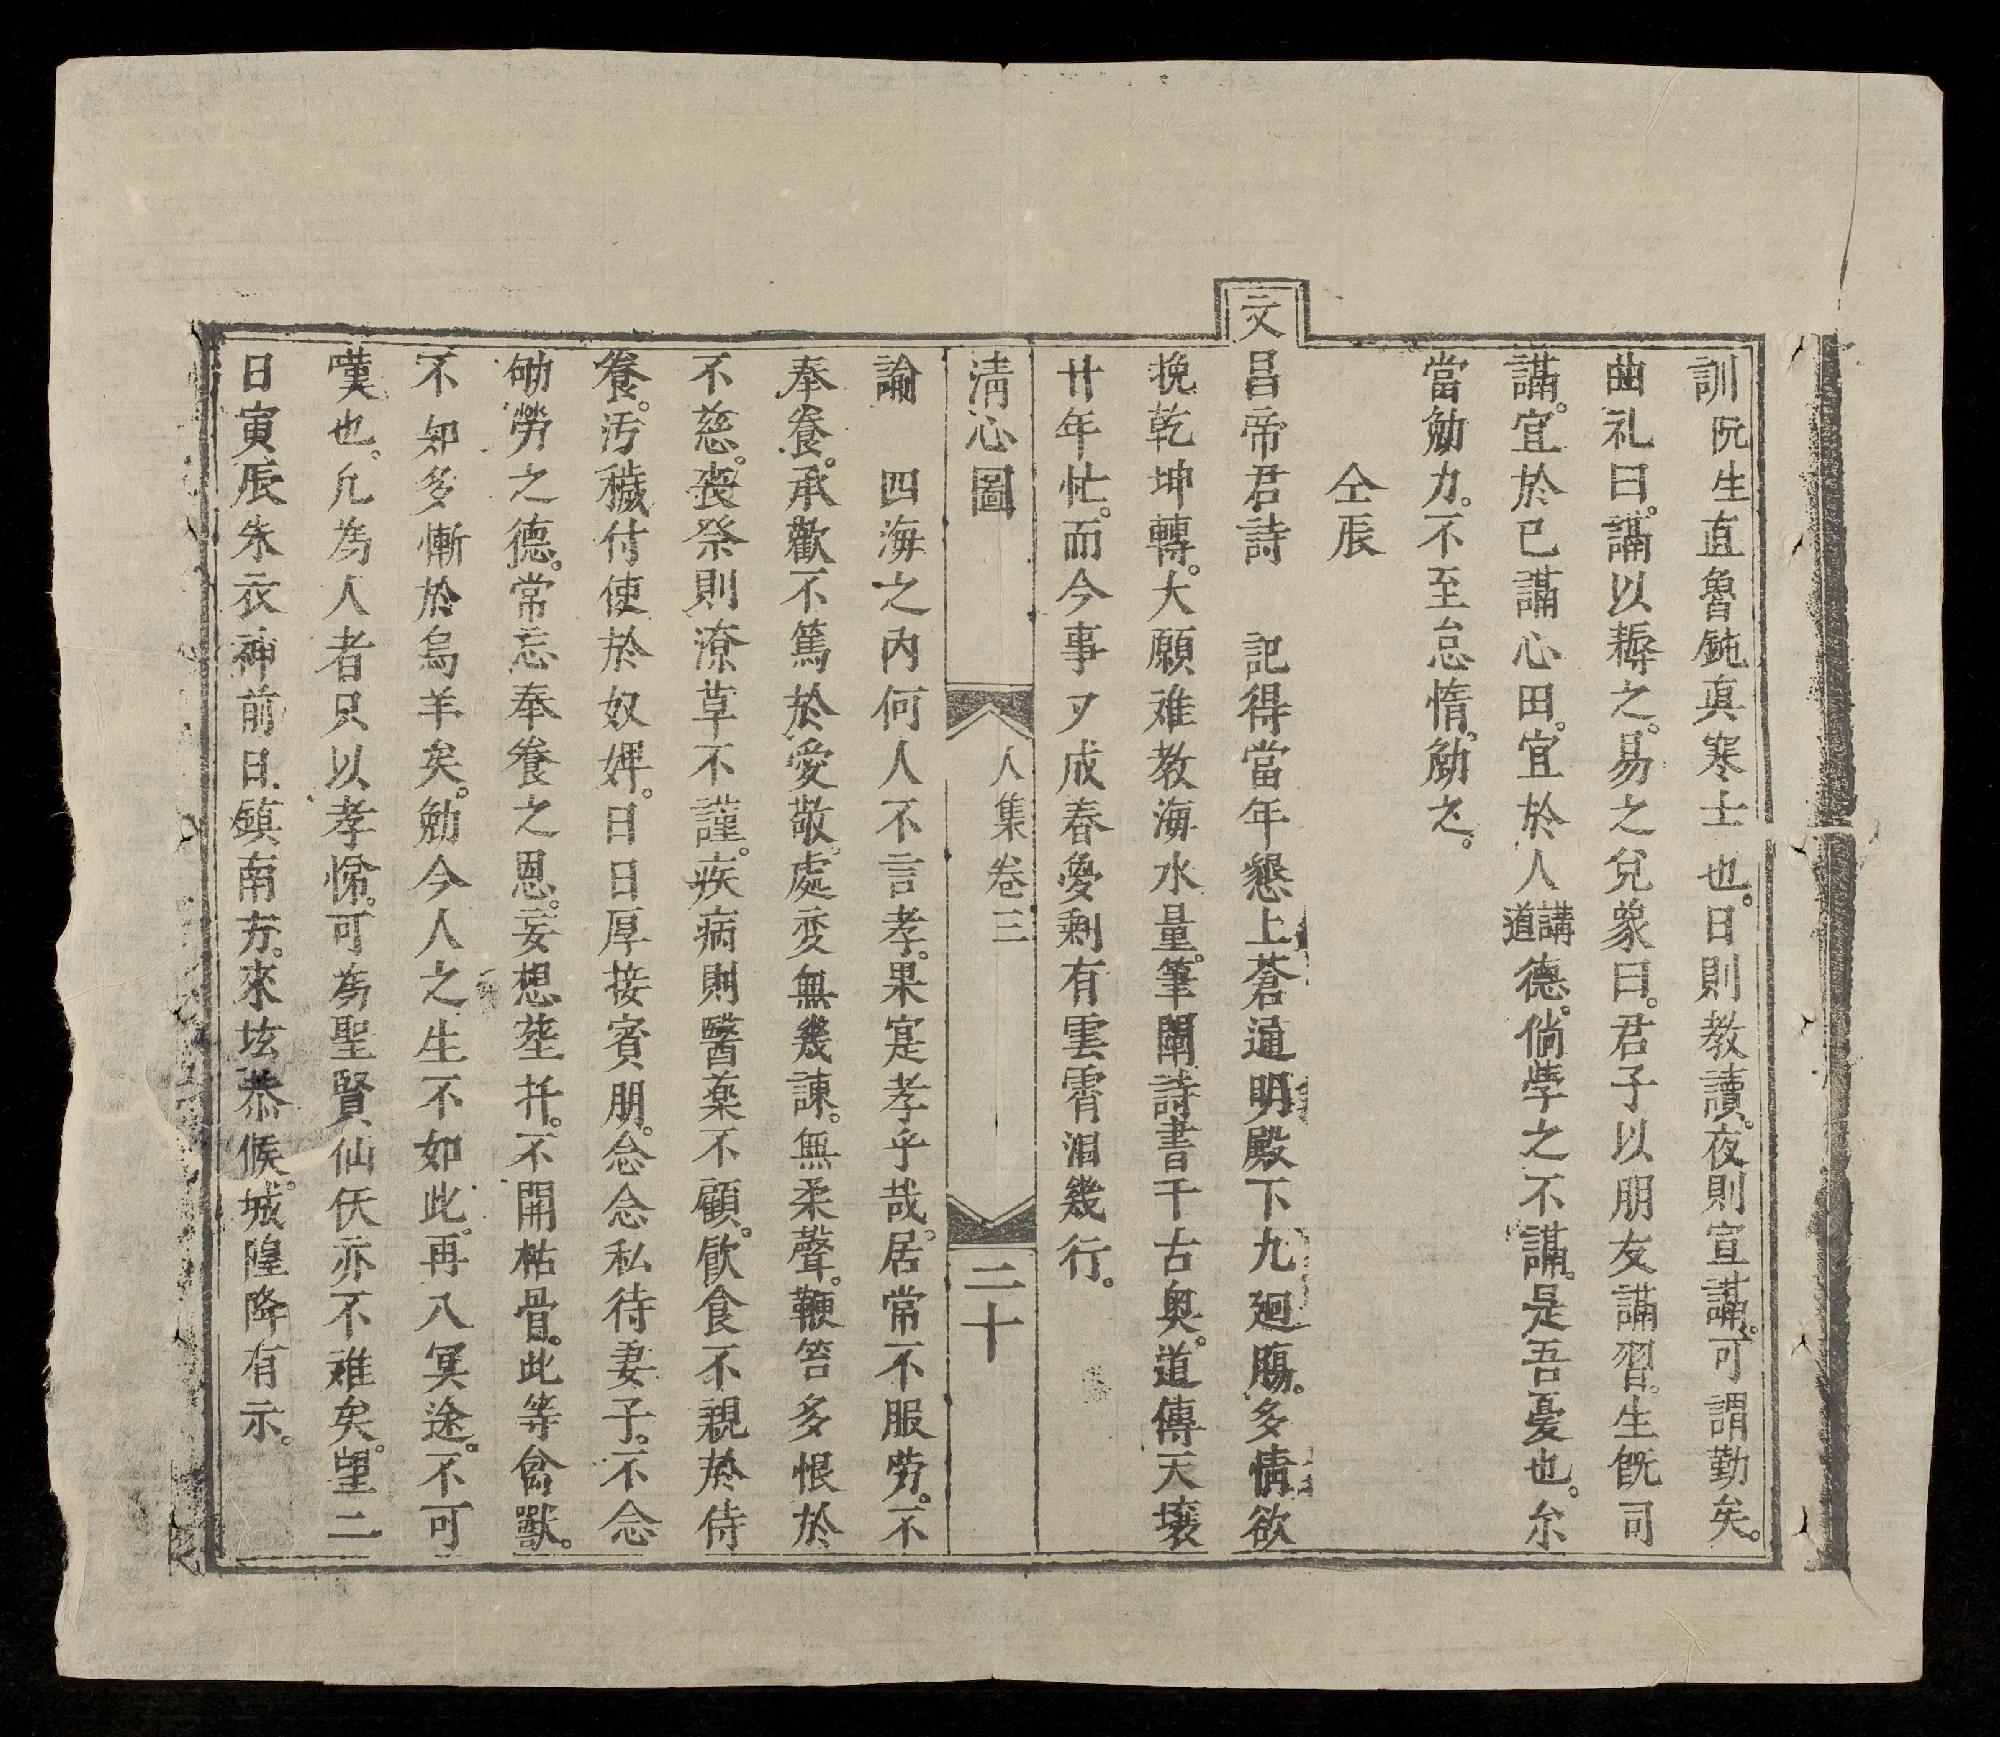 訓阮生直魯鈍真寒士也。日則教讀。夜則宣講。可謂勤矣。
曲礼曰。講以耨之。易之兌象曰。君子以朋友講習。生旣司
講。宜於己講心田。宜於人講道德。倘學之不講。是吾憂也。尔
當勉力。不至怠惰。勉之。
仝辰
文昌帝君詩 記得當年懇上蒼通明殿下九廻腸。多情欲
挽乾坤轉。大願难教海水量。筆闡詩書千古奥。道傳天壤
廿年忙。而今事又成春夢剩有雲霄淚幾行。
淸心圖 人集卷三 二十
論 四海之內何人不言孝。果寔孝乎哉。居常不服劳。不
奉飬。承歡不篤於愛敬。處变無幾諫。無柔聲。鞭笞多恨於
不慈。丧祭則潦草不謹。疾病則醫薬不顧。飲食不親於侍
飬。汚穢付使於奴婢。日日厚接賓朋。念念私待妻子。不念
劬勞之德。常忘奉飬之恩。妄想塟扦。不開枯骨。此等禽獸。
不知多慚於烏羊矣。勉今人之生不如此。再入冥途。不可
嘆也。凢為人者只以孝悌。可為聖賢仙仸亦不难矣。望二
日寅辰朱衣神前日鎮南方。來坛恭候。城隍降有示。